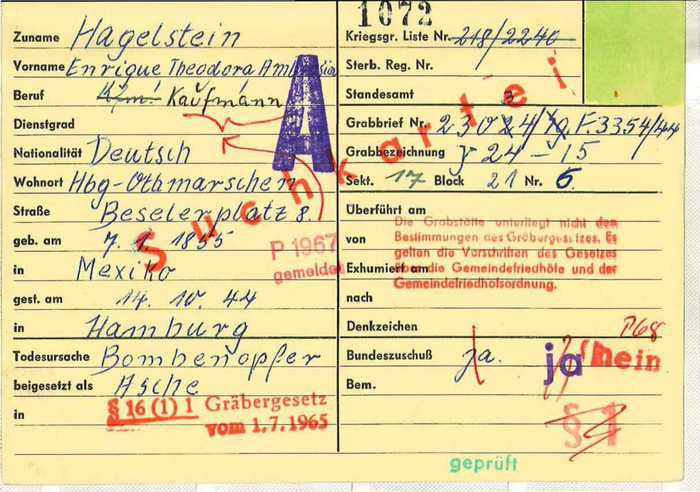 1072
Zuname Hagelstein
Vorname Enrique Theodora
Beruf Kfm. Kaufmann
Dienstgrad
Nationalität Deutsch
Wohnort Hbg-Othmarschen
Straße Beselerplatz 8.
geb. am 7. 1. 1855
in Mexiko
gest. am 14. 10. 44
in Hamburg
Todesursache Bombenopfer
beigesetzt als Asche
in
§ 16 (1) 1 Gräbergesetz
vom 1.7.1965
A
Suchkartei
P 1967
gemeldet
Kriegsgr. Liste Nr. 218/2240
Sterb. Reg. Nr.
Standesamt
Grabbrief Nr. 23024/ F. 3354/44
Grabbezeichnung 24-15
Sekt. 17 Block 21 Nr. 6.
Überführt am
von
Exhumiert am
nach
Die Grabstätte unterliegt nicht den
Bestimmungen des Gräbergesetzes. Es
gelten die Vorschriften des Gesetzes
über die Gemeindefriedhöfe und der
Gemeindefriedhofsordnung.
Denkzeichen
P68
Bundeszuschuß ja. ja nein
Bem.
§ 1
geprüft